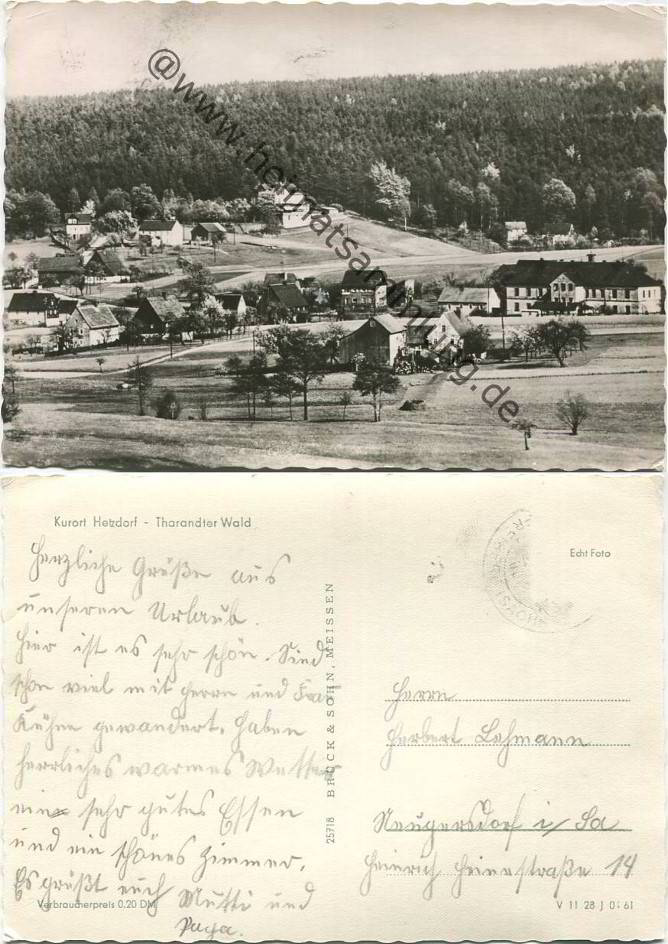 @www.heimatsammlung.de
Kurort Hetzdorf - Tharandter Wald
Herzliche Grüße aus
unseren Urlaub.
Hier ist es sehr schön. Sind
schon viel mit Herrn und Frau
Kühne gewandert. Haben
herrliches warmes Wetter
ein sehr gutes Essen
und ein schönes Zimmer.
Es grüßt euch Mutti und
Papa.
Verbraucherpreis 0.20 DM
25718 BRÜCK & SOHN, MEISSEN
Echt Foto
Herrn
Herbert Lehmann
Neugersdorf i/Sa
Heinrich Heinestraße 14
V 11 28 J 01 61